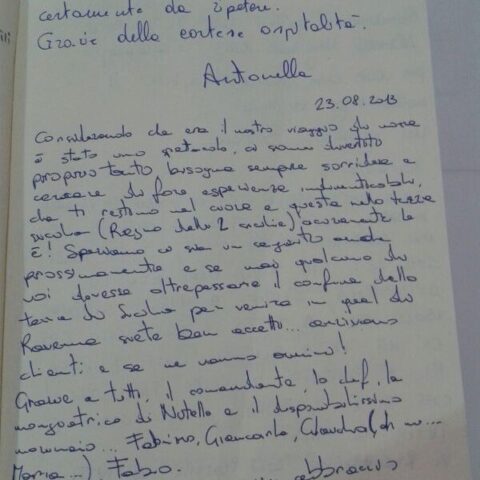 certamente da ripetere.
Grazie della cortese ospitalità.
Antonella
23.08.2013
Considerando che era il nostro viaggio di nozze
è stato uno spettacolo, ci siamo divertiti
proprio tanto bisogna sempre sorridere e
cercare di fare esperienze indimenticabili,
che ti restino nel cuore e questa nella terra
sicula (Regno delle 2 Sicilie) sicuramente lo
è! Speriamo ci sia un seguito anche
prossimamente e se mai qualcuno di
voi dovesse oltrepassare il confine della
terra di Sicilia per venire in quel di
Ravenna siete ben accetti... arrivano
clienti e se ne vanno amici!
Grazie a tutti, il comandante, lo chef, la
mangiatrice di Nutella e il disponibilissimo
marinaio... Fabrizio, Giancarlo, Claudia (di
Maria...), Fabio.
abbraccio